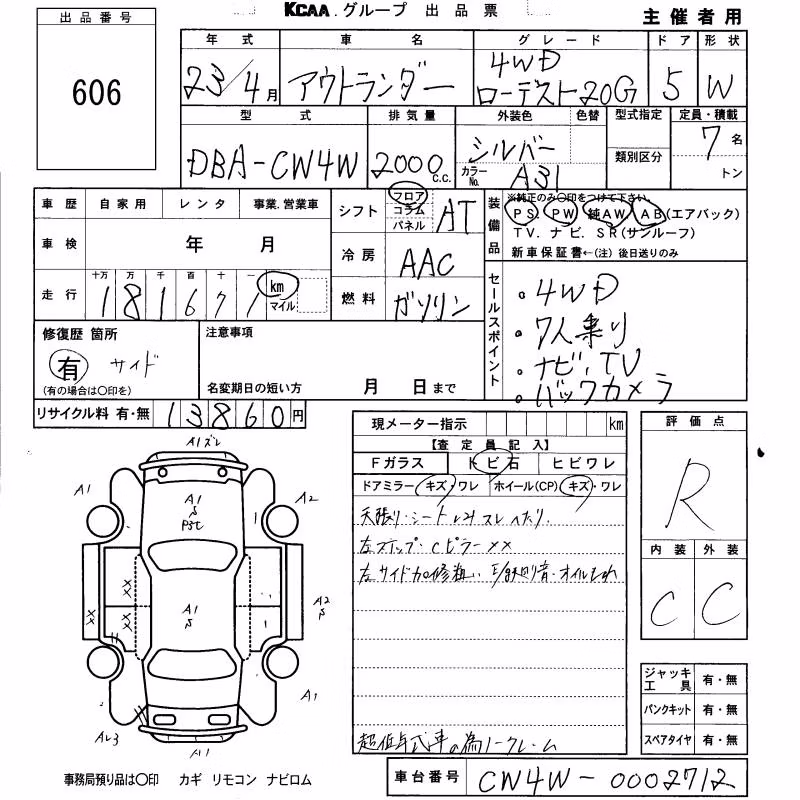 KCAA.グループ 出品票
主催者用
出品番号
606
年式 車名 グレード ドア 形状
23/4月 アウトランダー 4WD ローデスト20G 5 W
型式 排気量 外装色 色替 型式指定 定員・積載
DBA-CW4W 2000c.c. シルバー 類別区分 7名
カラーNo. A31 トン
車歴 自家用 レンタ 事業.営業車
車検 年 月
走行 十万 万 千 百 十 一 km
181677 マイル
シフト フロア コラム パネル AT
冷房 AAC
燃料 ガソリン
装備品
※純正のみ○印をつけて下さい。
PS. PW 純AW AB(エアバック)
TV. ナビ. SR(サンルーフ)
新車保証書←(注)後日送りのみ
セールスポイント
・4WD
・7人乗り
・ナビ、TV
・バックカメラ
修復歴 箇所
有 サイド
(有の場合は○印を)
注意事項
名変期日の短い方 月 日まで
リサイクル料 有・無 13860円
現メーター指示 km
【査定員記入】
Fガラス トビ石 ヒビワレ
ドアミラー キズ・ワレ ホイール(CP) キズ・ワレ
天張り・シート シミ スレ ヘタリ.
左ステップ・Cピラーメメ
左サイド加修粗い
超低年式車の為ノークレーム
評価点
R
内装 外装
C C
ジャッキ 工具 有・無
パンクキット 有・無
スペアタイヤ 有・無
A1ズレ
A1
A2
A1
S
A1
S
XX
XX
A2
S
A1
A1
事務局預り品は○印 カギ リモコン ナビロム
車台番号 CW4W-0002712